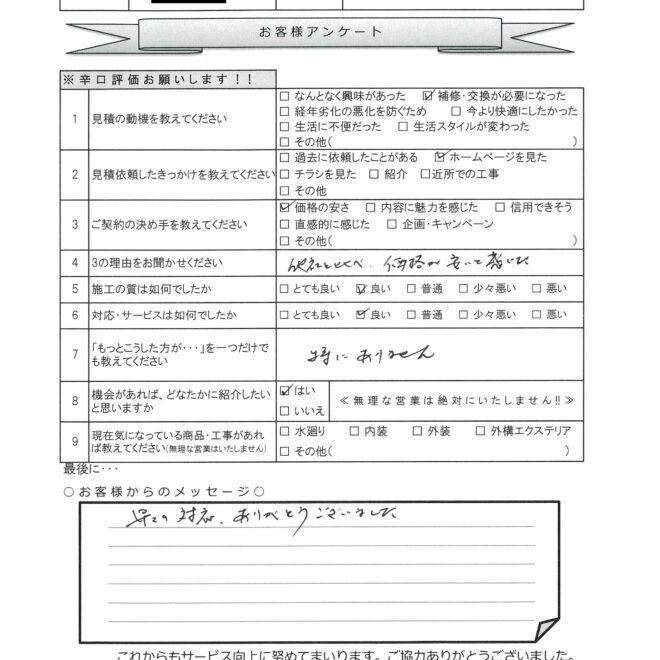 お客様アンケート
※辛口評価お願いします！！
1 見積の動機を教えてください
□ なんとなく興味があった ☑ 補修・交換が必要になった
□ 経年劣化の悪化を防ぐため □ 今より快適にしたかった
□ 生活に不便だった □ 生活スタイルが変わった
□ その他( )
2 見積依頼したきっかけを教えてください
□ 過去に依頼したことがある ☑ ホームページを見た
□ チラシを見た □ 紹介 □ 近所での工事
□ その他
3 ご契約の決め手を教えてください
☑ 価格の安さ □ 内容に魅力を感じた □ 信用できそう
□ 直感的に感じた □ 企画・キャンペーン
□ その他( )
4 3の理由をお聞かせください 他社とくらべ、価格が安いと感じた
5 施工の質は如何でしたか □ とても良い ☑ 良い □ 普通 □ 少々悪い □ 悪い
6 対応・サービスは如何でしたか □ とても良い ☑ 良い □ 普通 □ 少々悪い □ 悪い
7 「もっとこうした方が・・・」を一つだけでも教えてください
特にありません
8 機会があれば、どなたかに紹介したいと思いますか
☑ はい
□ いいえ
≪ 無理な営業は絶対にいたしません!! ≫
9 現在気になっている商品・工事があれば教えてください(無理な営業はいたしません)
□ 水廻り □ 内装 □ 外装 □ 外構エクステリア
□ その他( )
最後に・・・
○お客様からのメッセージ○
早々の対応、ありがとうございました
これからもサービス向上に努めてまいります。ご協力ありがとうございました。